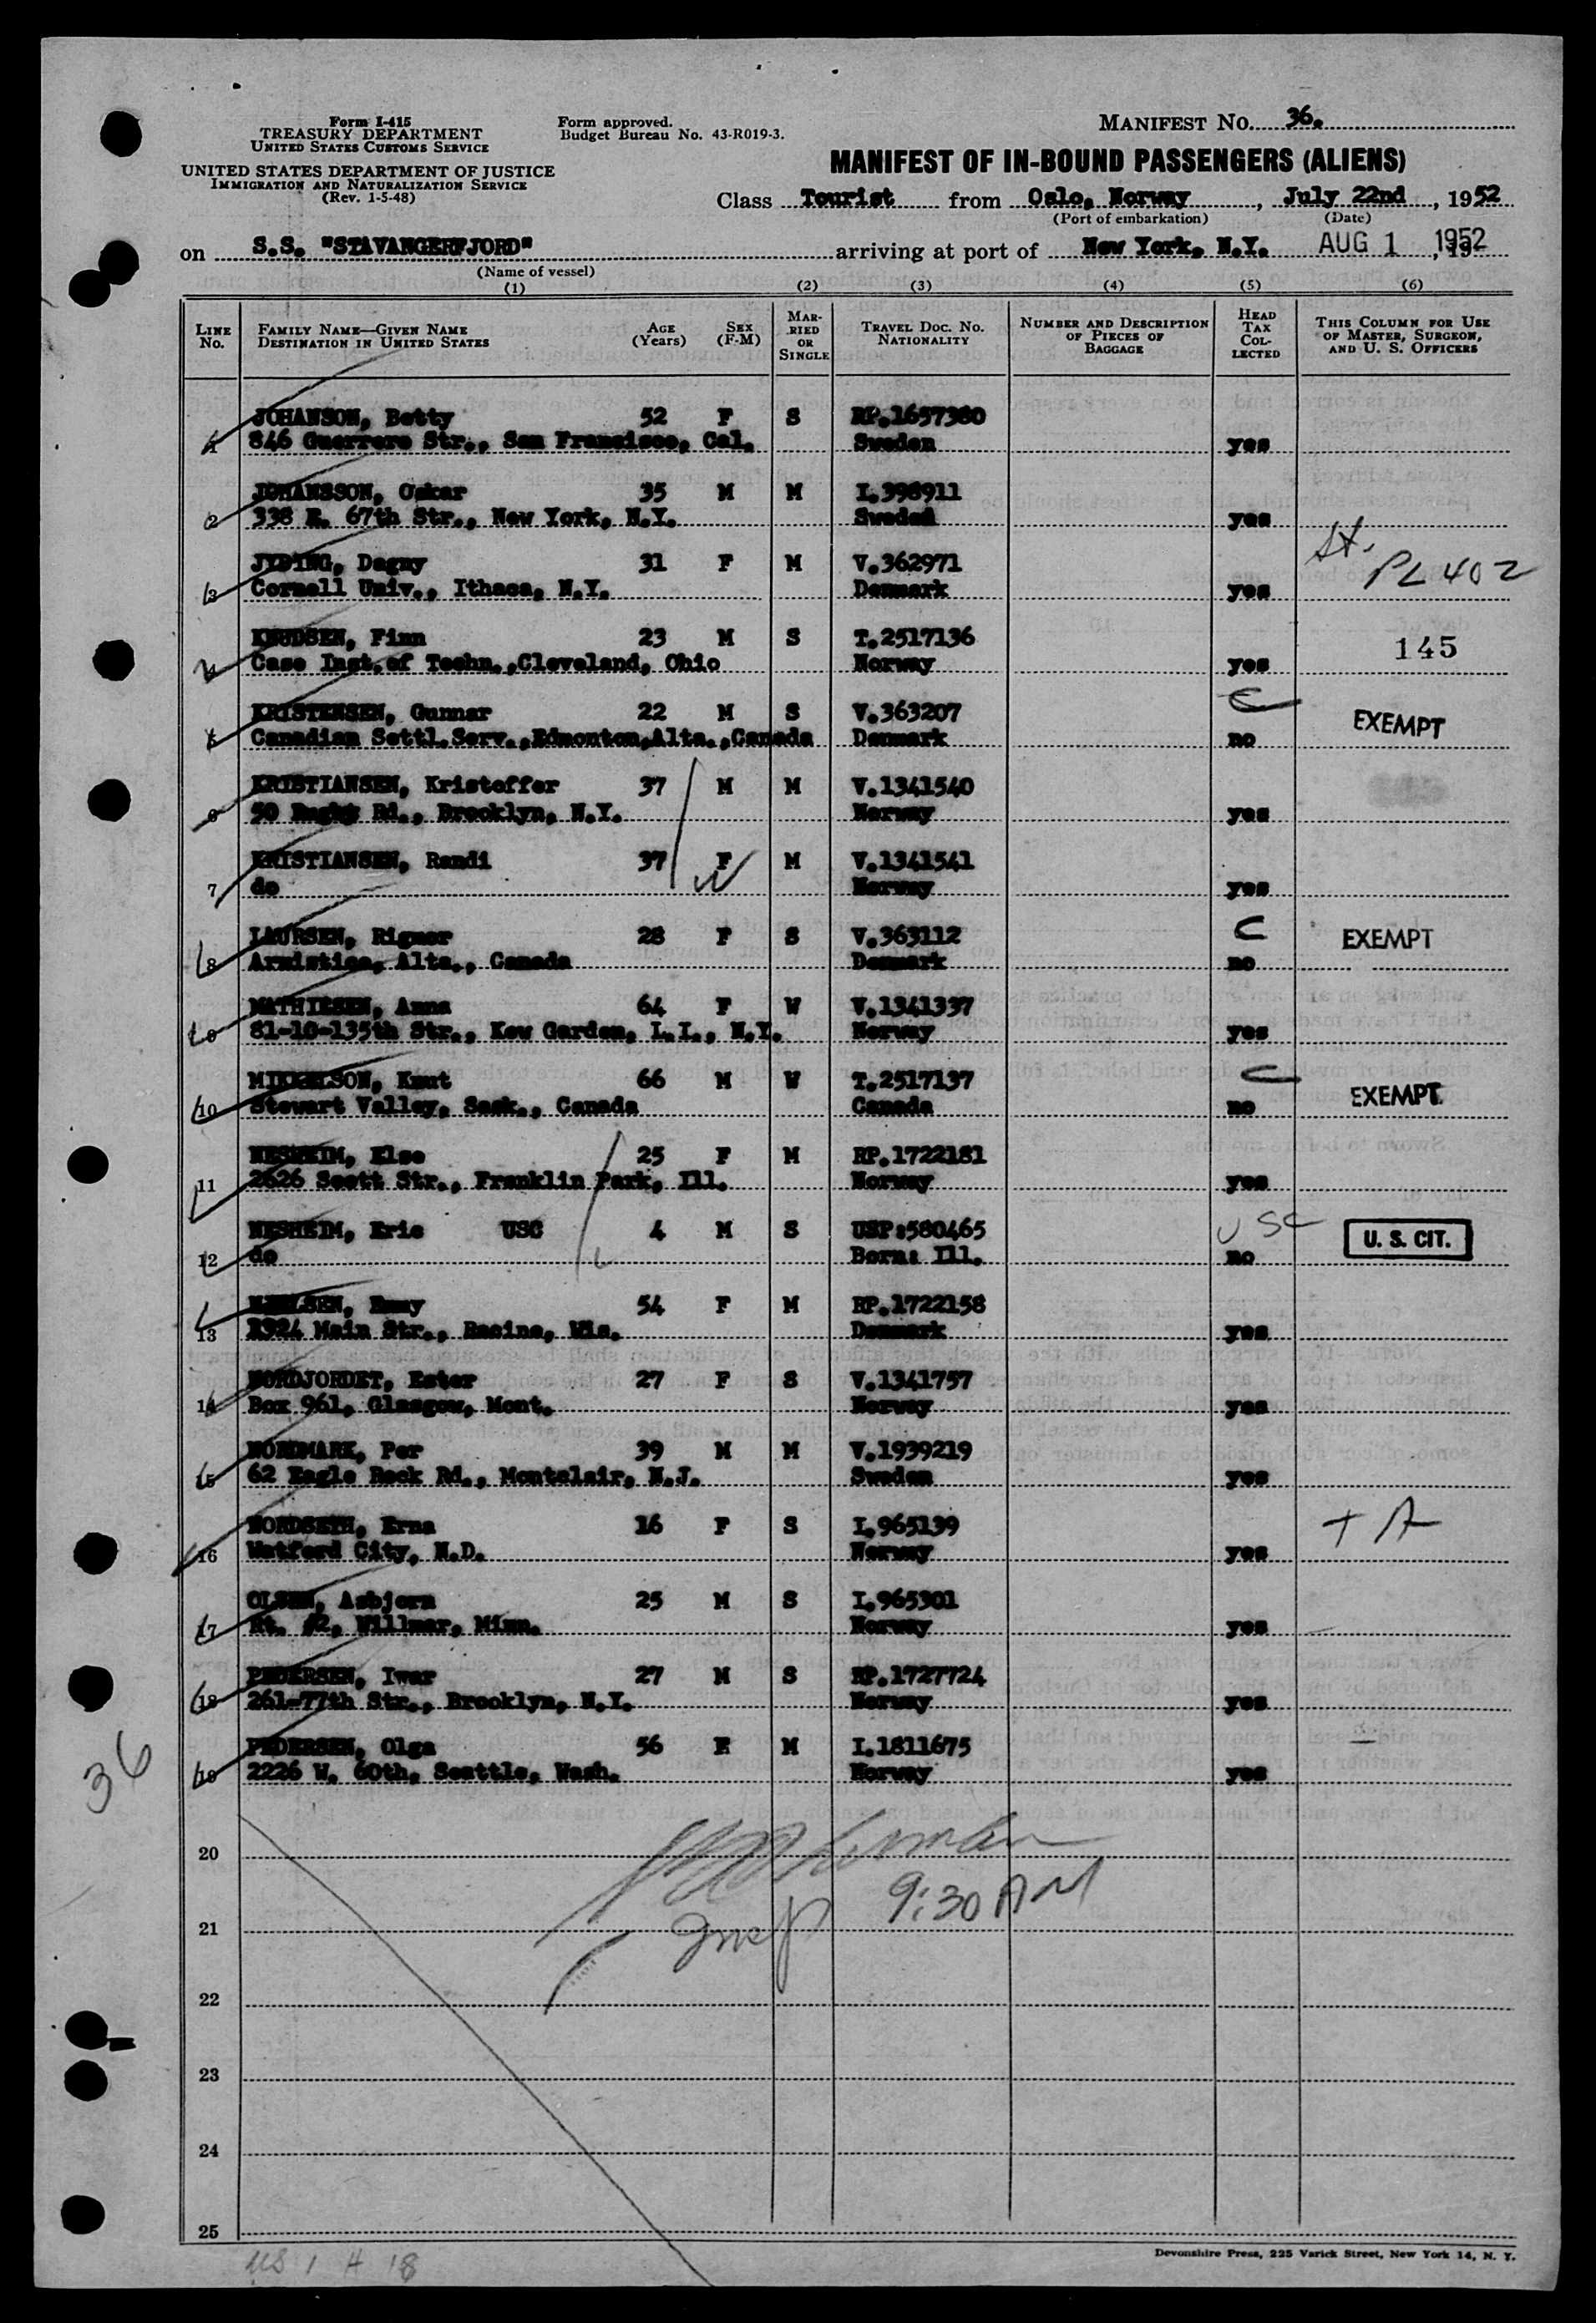 Form I-415
TREASURY DEPARTMENT
UNITED STATES CUSTOMS SERVICE
UNITED STATES DEPARTMENT OF JUSTICE
IMMIGRATION AND NATURALIZATION SERVICE
(Rev. 1-5-48)
Form approved.
Budget Bureau No. 43-R019-3.
MANIFEST NO. 36.
MANIFEST OF IN-BOUND PASSENGERS (ALIENS)
Class Tourist from Oslo, Norway, July 22nd, 1952
(Port of embarkation) (Date)
on S.S. "STAVANGERFJORD" arriving at port of New York, N.Y. AUG 1 1952, 19
(Name of vessel)
(1) (2) (3) (4) (5) (6)
LINE No. FAMILY NAME—GIVEN NAME DESTINATION IN UNITED STATES AGE (Years) SEX (F-M) MARRIED OR SINGLE TRAVEL DOC. NO. NATIONALITY NUMBER AND DESCRIPTION OF PIECES OF BAGGAGE HEAD TAX COLLECTED THIS COLUMN FOR USE OF MASTER, SURGEON, AND U. S. OFFICERS
JOHANSON, Betty 52 F S RP.1657380
1 846 Guerrero Str., San Francisco, Cal. Sweden yes
JOHANSSON, Oskar 35 M M I.398911
2 338 E. 67th Str., New York, N.Y. Sweden yes
JYDING, Dagny 31 F M V.362971 St. PL 402
3 Cornell Univ., Ithaca, N.Y. Denmark yes
KNUDSEN, Finn 23 M S T.2517136 145
4 Case Inst.of Techn.,Cleveland, Ohio Norway yes
KRISTENSEN, Gunnar 22 M S V.363207 C EXEMPT
5 Canadian Settl.Serv.,Edmonton,Alta.,Canada Denmark no
KRISTIANSEN, Kristoffer 37 M M V.1341540
6 50 Rugby Rd., Brooklyn, N.Y. Norway yes
KRISTIANSEN, Randi 37 F M V.1341541
7 do Norway yes
LAURSEN, Rigmor 28 F S V.363112 C EXEMPT
8 Armistice, Alta., Canada Denmark no
MATHIESEN, Anna 64 F W V.1341337
9 81-10-135th Str., Kew Garden, L.I., N.Y. Norway yes
MIKKELSON, Knut 66 M W T.2517137 C EXEMPT
10 Stewart Valley, Sask., Canada Canada no
NESHEIM, Else 25 F M RP.1722181
11 2626 Scott Str., Franklin Park, Ill. Norway yes
NESHEIM, Eric USC 4 M S USP:580465 USC U. S. CIT.
12 do Born: Ill. no
NIELSEN, Emmy 54 F M RP.1722158
13 1924 Main Str., Racine, Wis. Denmark yes
NORDJORDET, Ester 27 F S V.1341757
14 Box 961, Glasgow, Mont. Norway yes
NORDMARK, Per 39 M M V.1939219
15 62 Eagle Rock Rd., Montclair, N.J. Sweden yes
NORDSETH, Erna 16 F S I.965139 + A
16 Watford City, N.D. Norway yes
OLSEN, Asbjorn 25 M S I.965301
17 Rt. #2, Willmar, Minn. Norway yes
PEDERSEN, Iwar 27 M S RP.1727724
18 261-77th Str., Brooklyn, N.Y. Norway yes
PEDERSEN, Olga 56 F M I.1811675
19 2226 W. 60th, Seattle, Wash. Norway yes
36
20
9:30 AM
21 Insp
22
23
24
25
US 1 A 18
Devonshire Press, 225 Varick Street, New York 14, N. Y.